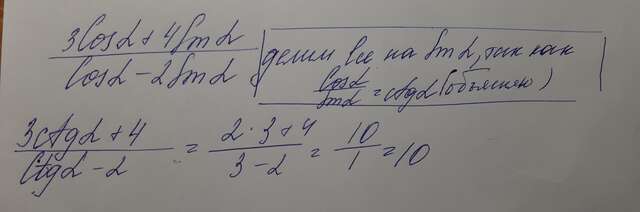 3Cosα + 4Sinα / Cosα - 2Sinα
делим все на Sinα, так как
Cosα / Sinα = ctgα (объясняю)
3ctgα + 4 / Ctgα - 2 = 2·3+4 / 3-2 = 10 / 1 = 10